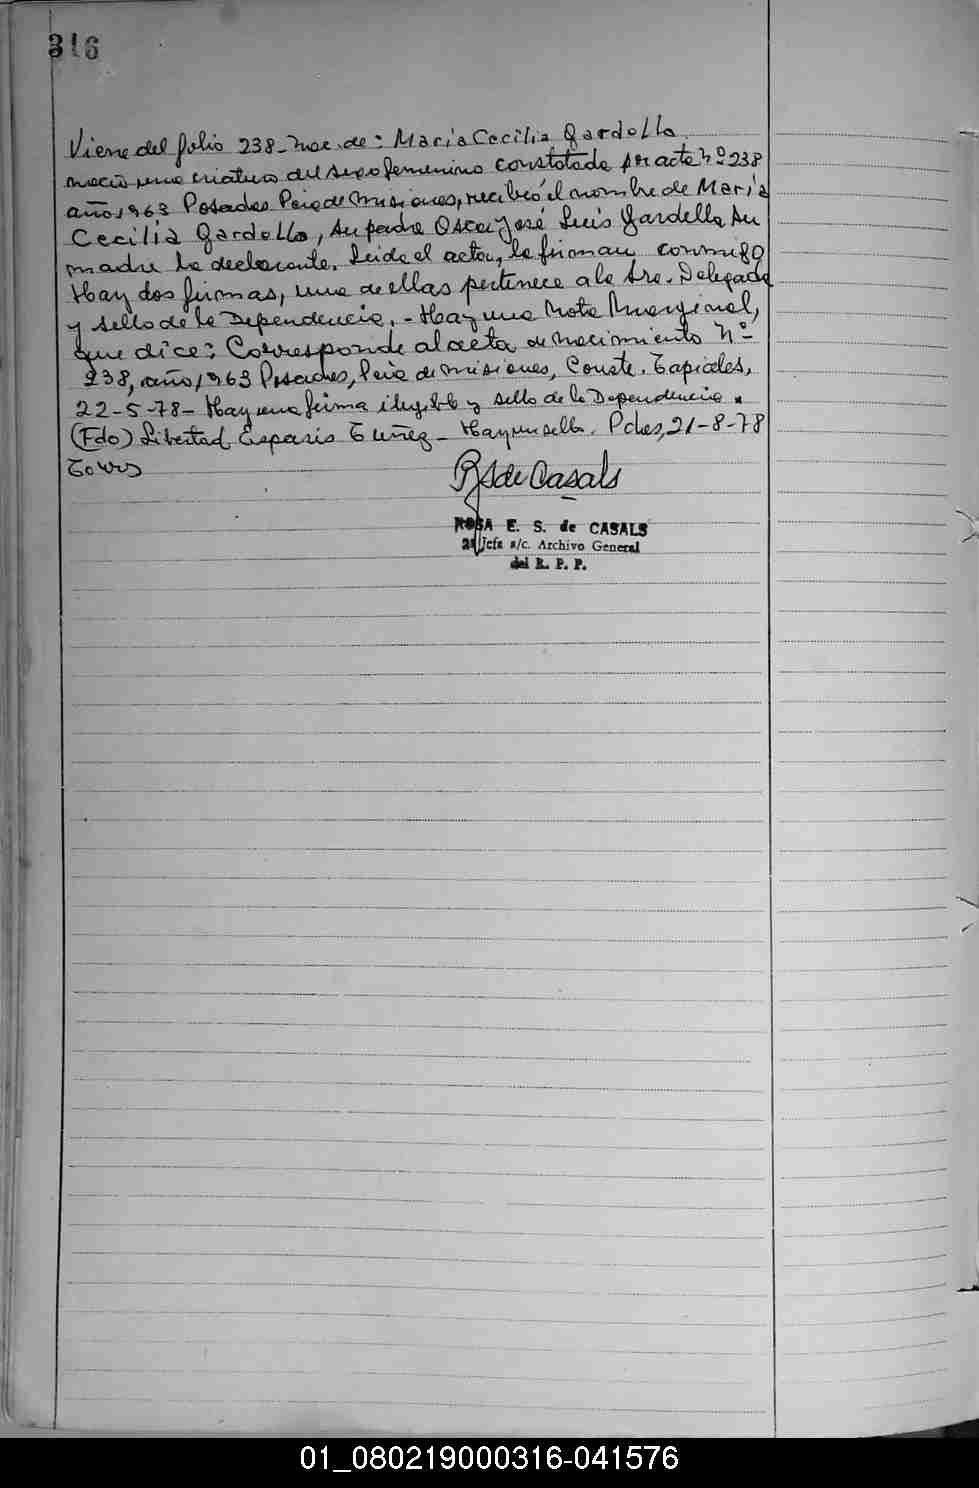 316
Viene del folio 238 - nac. de: Maria Cecilia Gardella
nació una criatura del sexo femenino constatada por acta Nº 238
año 1963 Posadas Pcia de Misiones, recibió el nombre de María
Cecilia Gardella, su padre Oscar José Luis Gardella su
madre la declarante. Leída el acta, la firman conmigo
Hay dos firmas, una de ellas pertenece a la Sra. Delegada
y sello de la Dependencia. - Hay una Nota Marginal,
que dice: Corresponde al acta de nacimiento Nº
238, año 1963 Posadas, Pcia de Misiones, Conste. Tapiales,
22-5-78 - Hay una firma ilegible y sello de la Dependencia.
(Fdo) Libertad Esparis - Hay un sello. Pdas, 21-8-78
RS de Casals
ROSA E. S. de CASALS
2ª Jefa a/c. Archivo General
del R. P. P.
01_080219000316-041576